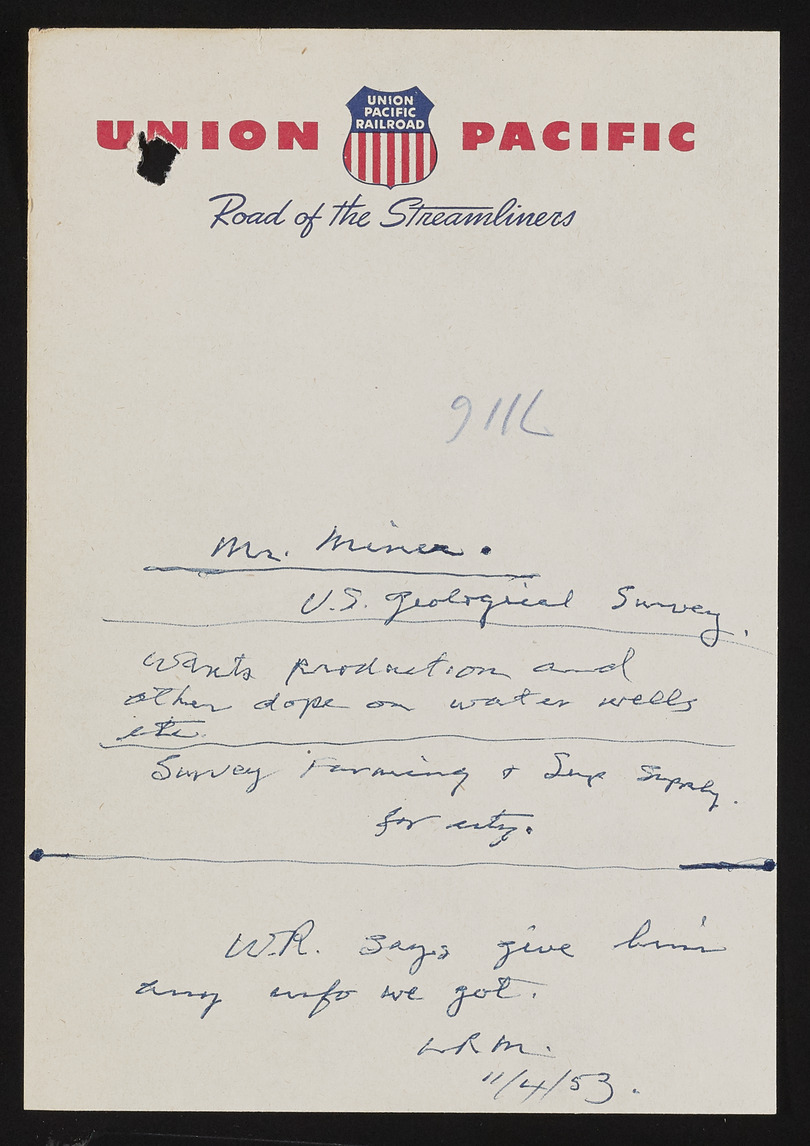 UNION PACIFIC RAILROAD
UNION PACIFIC
Road of the Streamliners
Mr. Miner.
U.S. Geological Survey.
Wants production and
other dope on water wells
etc.
Survey Farming & Supply.
for city.
W.R. says give him
any info we got.
W R M.
11/4/53.